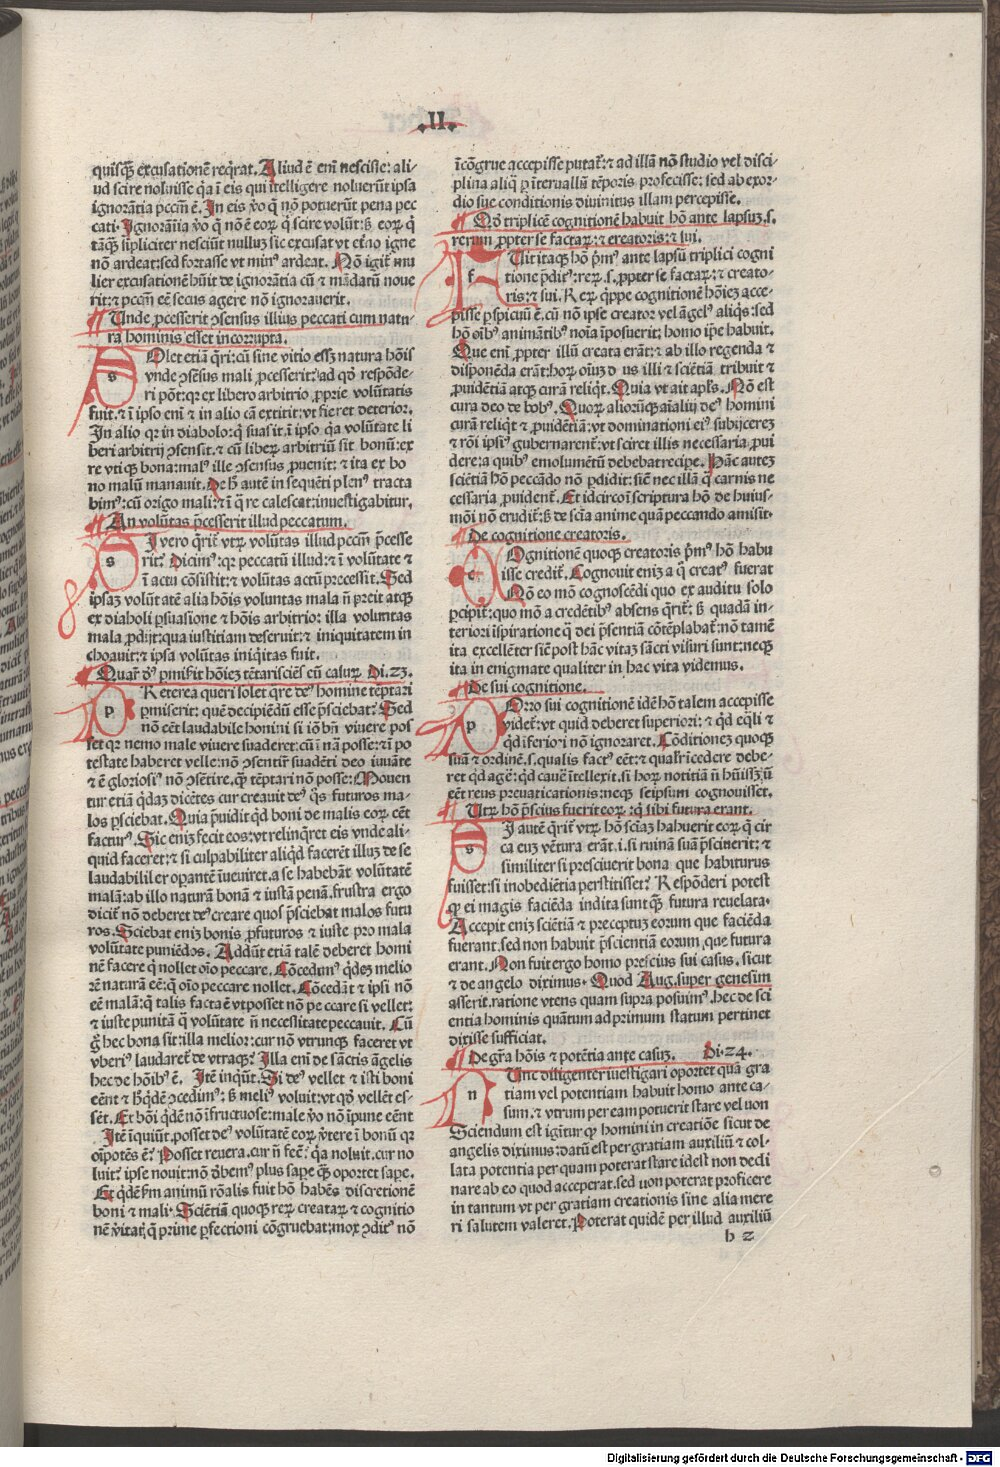 .II.
quisq̃ȝ excusationē reqͥrat. Aliud ē eni nescisse: ali-
ud scire noluisse qͥa ī eis qui ītelligere noluerūt ipsa
ignorātia pccm̄ ē. In eis v̊o q̄ nō potuerūt pena pec
cati. Ignorātia v̊o q̄ nō ē eoꝝ q̄ scire volūt: sȝ eoꝝ q̄
tāqȝ sīpliciter nesciūt nullus sic excusat vt etno igne
nō ardeat: sed fortasse vt min⁹ ardeat. Nō igit̃ mu
lier excusationē hūit de ignorātia cū ⁊ mādatū noue
rit: ⁊ pccm̄ eē secus agere nō ignorauerit.
Unde ꝓcesserit ꝯsensus illius peccati cum natu-
ra hominis esset incorrupta.
SOlet etiā q̄ri: cū sine vitio essȝ natura hoīs
vnde ꝯsēsus mali ꝓcesserit: ad qd̓ respōde-
ri pōt: qꝛ ex libero arbitrio ꝓprie volūtatis
fuit. ⁊ ī ipso eni ⁊ in alio cā extitit: vt fieret deterior.
In alio qꝛ in diabolo: q̄ suasit. ī ipso qͥa volūtate li
beri arbitrij ꝯsensit. ⁊ cū liberꝫ arbitriū sit bonū: ex
re vtiqȝ bona: mal⁹ ille ꝯsensus ꝓuenit: ⁊ ita ex bo
no malū manauit. De h̓ autē in sequēti plen⁹ tracta
bim⁹: cū origo mali: ⁊ ī q̄ re calescat: inuestigabitur.
An volūtas p̄cesserit illud peccatum.
SI vero q̄rit̃ vtꝝ volūtas illud pccm̄ p̄cesse
rit: Dicim⁹: qꝛ peccatū illud: ⁊ ī volūtate ⁊
ī actu cōsistit: ⁊ voluntas actū precessit. Sed
ipsaȝ volūtatē alia hoīs voluntas mala n̄ precit atqȝ
ex diaboli ꝑsuasione ⁊ hoīs arbitrio: illa voluntas
mala ꝓdijt: qua iustitiam deseruit: ⁊ iniquitatem in
choauit: ⁊ ipsa volūtas iniqͥtas fuit.
Quar̄ de⁹ ꝑmiserit hoīeȝ tētari sciēs eū casuꝝ Di.23.
PReterea queri solet q̄re de⁹ hominē tēptari
ꝑmiserit: quē decipiēdū esse p̄sciebat: Sed
nō eēt laudabile homini si iō bn̄ viuere pos
set qꝛ nemo male viuere suaderet: cū ī nā posse: ⁊ ī po
testate haberet velle: nō ꝯsentir̄ suadēti deo iuuāte
⁊ ē gloriosi⁹ nō ꝯsētire. qȝ tēptari nō posse: Mouen
tur etiā qͥdaȝ dicētes cur creauit de⁹ qͦs futuros ma-
los p̄sciebat. Quia p̄uidit qͥd boni de malis eoꝝ cēt
factur⁹. Sic eniȝ fecit eos: vt relinqͤret eis vnde ali-
quid faceret: ⁊ si culpabiliter aliqͥd facerēt illuȝ de se
laudabiliter operantē īueuiret. a se habebāt volūtatē
malā: ab illo naturā bonā ⁊ iustā penā. frustra ergo
dicit̃ nō deberet de⁹ creare quos p̄sciebat malos futu
ros. Sciebat eniȝ bonis ꝓfuturos ⁊ iuste pro mala
volūtate puniēdos. Addūt etiā talē deberet homi
nē facere q̄ nollet oīo peccare. Cōcedim⁹ qͥdeȝ melio
rē naturā eē: q̄ oīo peccare nollet. Cōcedāt ⁊ ipsi nō
eē malā: q̄ talis facta ē vt posset nō peccare si vellet:
⁊ iuste punitā q̄ volūtate n̄ necessitate peccauit. Cū
g̊ hec bona sit: illa melior: cur nō vtrunqȝ faceret vt
vberi⁹ laudaret̃ de vtraqȝ: Illa eni de sāctis āgelis
hec de hoībꝰ ē. Itē inqūt. Si de⁹ vellet ⁊ isti boni
eēnt ⁊ hͦqͥdē ꝯcedim⁹: sȝ meli⁹ voluit: vt qd̓ vellēt es-
sēt. Et bōi qͥdē nō īfructuose: male v̊o nō īpune eēnt
Itē īquiūt. posset de⁹ volūtatē eoꝝ ꝟtere ī bonū qꝛ
oīpotēs ē: Posset reuera. cur n̄ fec̄: qͥa noluit. cur no
luit: ipse nouit: nō dēbem⁹ plus sape qȝ oportet sape.
Et qͥdē ẜm animū rōalis fuit hō habēs discretionē
boni ⁊ mali. Sciētiā quoqȝ reꝝ creataꝝ ⁊ cognitio
nē v̓itat̃ q̄ prime ꝑfectioni cōgruebat: mox ꝯdit⁹ nō
īcōgrue accepisse putat̃: ⁊ ad illā nō studio vel disci-
plina aliq̄ ꝑ īteruallū tēporis profecisse: sed ab exor-
dio sue conditionis diuinitus illam percepisse.
Qd̓ triplicē cognitionē habuit hō ante lapsuȝ. s.
rerum ꝓpter se factaꝝ: ⁊ creatoris: ⁊ sui.
FUit itaqȝ hō pͥm⁹ ante lapsū triplici cogni
tione p̄dit⁹: reꝝ. s. ꝓpter se factaꝝ: ⁊ creato-
ris: ⁊ sui. Reꝝ q̄ppe cognitionē hōieȝ acce-
pisse ꝑspicuū ē. cū nō ipse creator vel āgel⁹ aliqͥs: sed
hō oībꝰ animātibꝰ noīa īposuerit; homo ip̄e habuit.
Que eni ꝓpter illū creata erāt: ⁊ ab illo regenda ⁊
disponēda erāt: hoꝝ oīuȝ d⁹ us illi ⁊ sciētiā tribuit ⁊
ꝓuidētiā atqȝ curā reliqͥt. Quia vt ait apl̄s. Nō est
cura deo de bobꝰ. Quoꝝ alioꝝūqȝ aīaliū de⁹ homini
curā reliqͥt ⁊ ꝓuidētiā: vt dominationi ei⁹ subijcerȝ
⁊ rōi ipsi⁹ gubernarent̃: vt sciret illis necessaria ꝓui
dere: a quibꝰ emolumētū debebat recipe. Hāc auteȝ
sciētiā hō peccādo nō ꝑdidit: siē nec illā q̄ carnis ne
cessaria ꝓuident̃. Et idcirco ī scriptura hō de huius-
mōi nō erudit̃: sȝ de sciā anime quā peccando amisit.
De cognitione creatoris.
COgnitionē quoqȝ creatoris pͥm⁹ hō habu
isse credit̃. Cognouit eniȝ a q̄ creat⁹ fuerat
Nō eo mō cognoscēdi quo ex auditu solo
ꝑcipit̃: quo mō a credētibꝰ absens q̄rit̃: sȝ quadā in-
teriori īspiratione q̄ dei p̄sentiā cōtēplabat̃: nō tamē
ita excellēter siē post hāc vitaȝ sācti visuri sunt: neqȝ
ita in enigmate qualiter in hac vita videmus.
De sui cognitione.
POrro sui cognitionē idē hō talem accepisse
videt̃: vt quid deberet superiori: ⁊ qͥd eq̄li ⁊
qͥd īferiori nō ignoraret. Cōditioneȝ quoqȝ
suā ⁊ ordinē. s. qualis fact⁹ eēt: ⁊ qualr̄ īcedere debe-
ret qͥd agē: qͥd cauē ītellexit. si hoꝝ notitiā n̄ hūissȝ n̄
eēt reus preuaricationis: neqȝ seipsum cognouisset.
Utꝝ hō p̄scius fuerit eoꝝ: q̄ sibi futura erant.
SI autē q̄rit̃ vtꝝ hō sciaȝ habuerit eoꝝ q̄ cir
ca euȝ vētura erāt. i. si ruinā suā p̄sciuerit: ⁊
similiter si presciuerit bona que habiturus
fuisset: si inobediētia perstitisset: Respōderi potest
qꝛ ei magis faciēda indita sunt qȝ futura reuelata.
Accepit eniȝ sciētiā ⁊ preceptuȝ eorum que faciēda
fuerant. sed non habuit p̄scientiam eorum, que futura
erant. Non fuit ergo homo prescius sui casus. sicut
⁊ de angelo diximus. Quod Aug. super genesim
asserit. ratione vtens quam supra posuim⁹. hec de sci
entia hominis quātum ad primum statum pertinet
dixisse sufficiat.
De grā hoīs ⁊ potētia ante casuȝ. Di.24.
NUnc diligenter īuestigari oportet quā gra
tiam vel potentiam habuit homo ante ca-
sum. ⁊ vtrum per eam potuerit stare vel non
Sciendum est igit̃ur qȝ homini in creatiōe sicut de
angelis diximus: datū est per gratiam auxiliū ⁊ col-
lata potentia per quam poterat stare idest non decli
nare ab eo quod acceperat. sed non poterat proficere
in tantum vt per gratiam creationis sine alia mere
ri salutem valeret. Poterat quidē per illud auxiliū
h 2
Digitalisierung gefördert durch die Deutsche Forschungsgemeinschaft - DFG